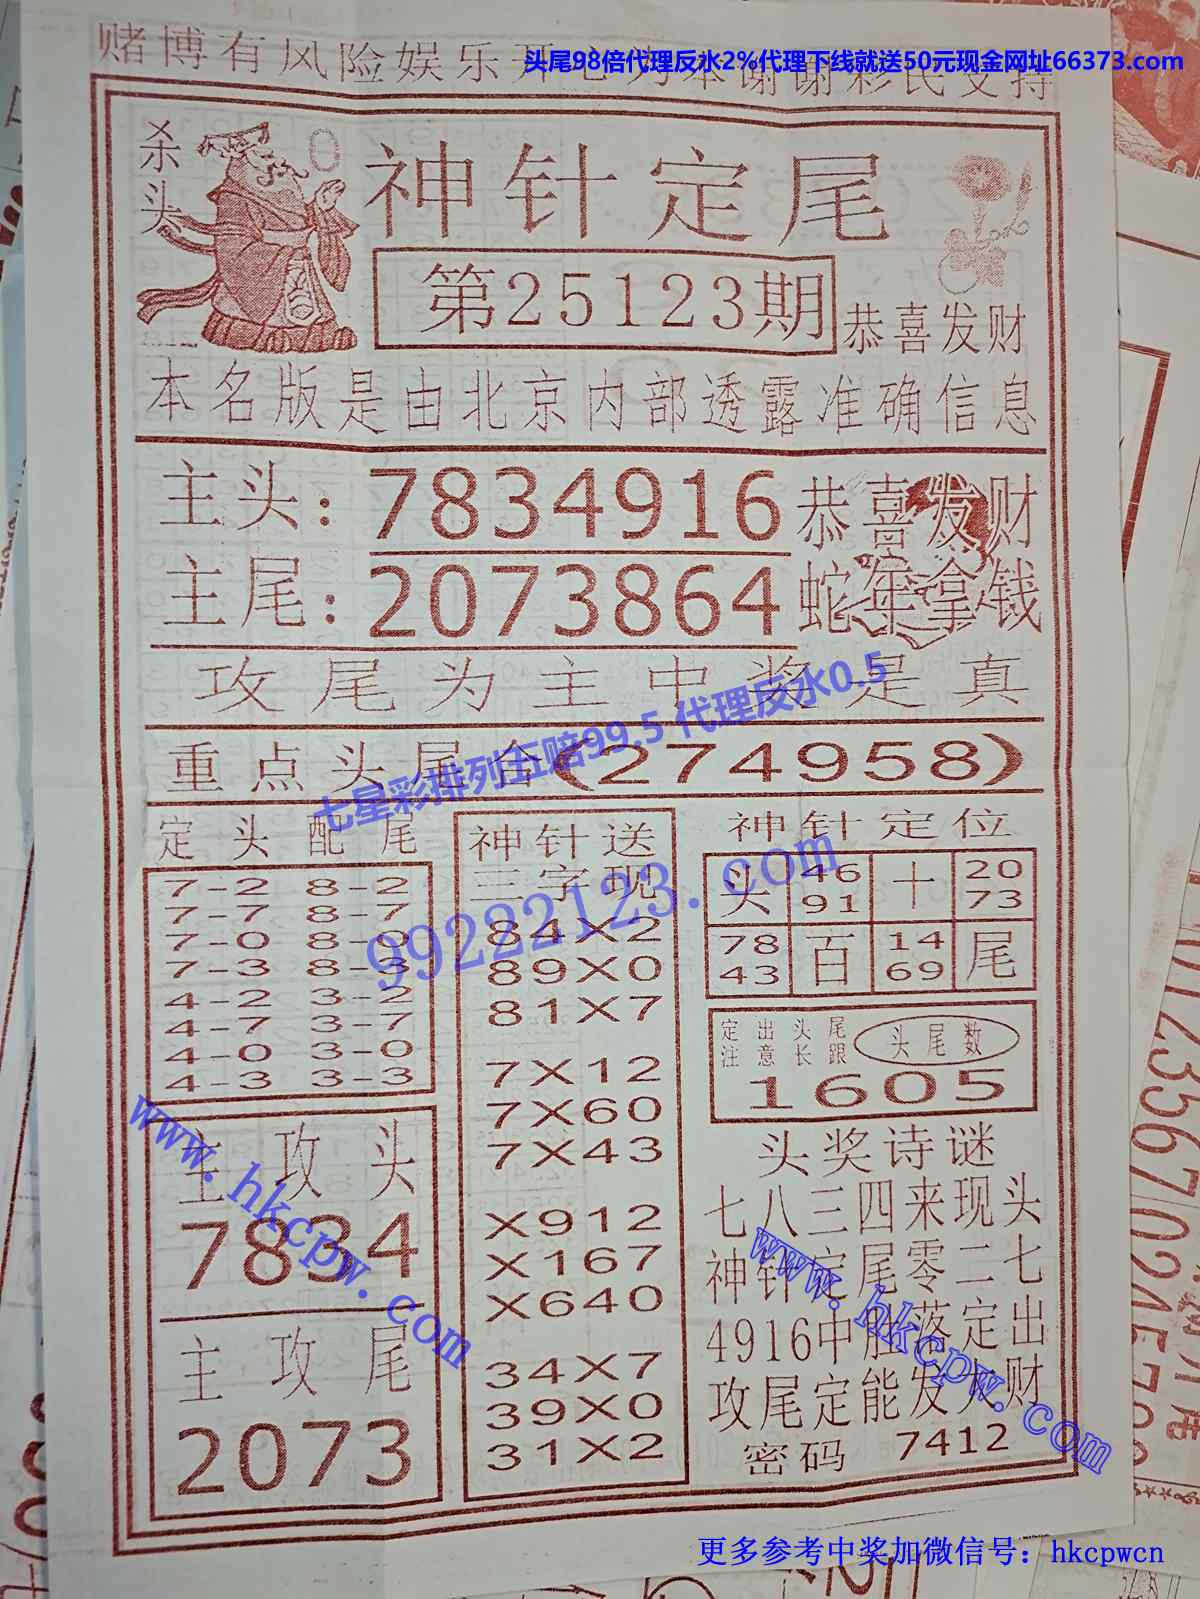 头尾98倍代理反水2%代理下线就送50元现金网址66373.com
赌博有风险娱乐开心为本谢谢彩民支持
杀头
0
神针定尾
第25123期
恭喜发财
本名版是由北京内部透露准确信息
主头：7834916
恭喜发财
主尾：2073864
蛇年拿钱
攻尾为主中奖是真
七星彩排列五赔99.5 代理反水0.5
重点头尾合(274958)
定头配尾
7-2 8-2
7-7 8-7
7-0 8-0
7-3 8-3
4-2 3-2
4-7 3-7
4-0 3-0
4-3 3-3
主攻头
7834
主攻尾
2073
神针送
三字现
84X2
89X0
81X7
7X12
7X60
7X43
X912
X167
X640
34X7
39X0
31X2
99222123.com
神针定位
头 46 十 20
91 73
78 百 14 尾
43 69
定出头尾
注意长跟
头尾数
1605
头奖诗谜
七八三四来现头
神针定尾零二七
4916中胜落定出
攻尾定能发大财
密码 7412
www.hkcpw.com
www.hkcpw.com
更多参考中奖加微信号：hkcpwcn